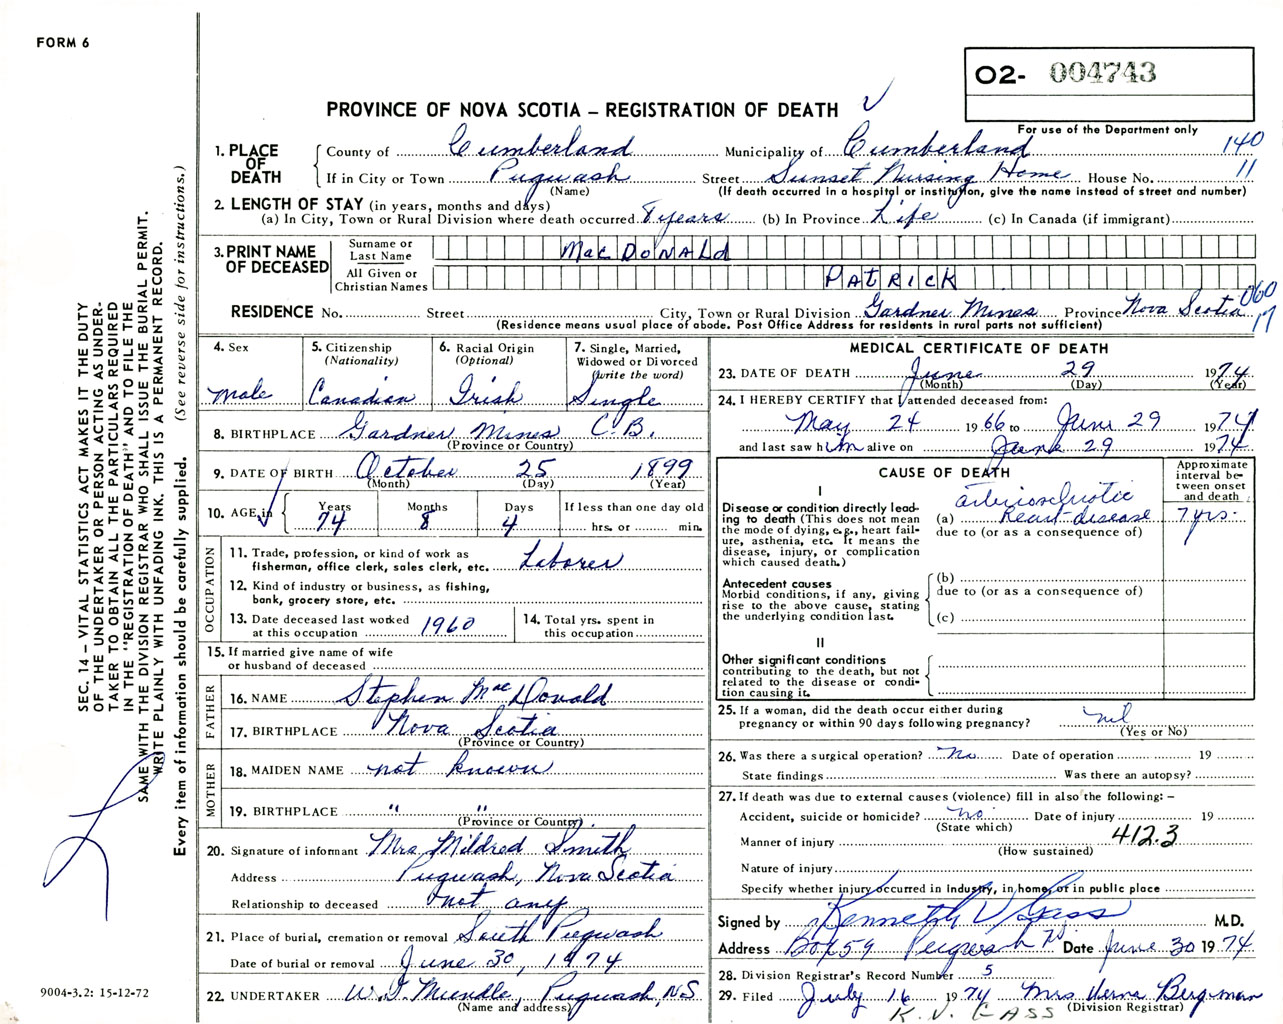 FORM 6
O2- 004743
PROVINCE OF NOVA SCOTIA – REGISTRATION OF DEATH
For use of the Department only
1. PLACE OF DEATH County of Cumberland Municipality of Cumberland 140
If in City or Town Pugwash Street Sunset Nursing Home House No. 11
(Name) (If death occurred in a hospital or institution, give the name instead of street and number)
2. LENGTH OF STAY (in years, months and days)
(a) In City, Town or Rural Division where death occurred 8 years (b) In Province Life (c) In Canada (if immigrant)
3. PRINT NAME OF DECEASED Surname or Last Name MacDONALd
All Given or Christian Names PATRICK
RESIDENCE No. Street City, Town or Rural Division Gardner Mines Province Nova Scotia 060
17
(Residence means usual place of abode. Post Office Address for residents in rural parts not sufficient)
4. Sex 5. Citizenship (Nationality) 6. Racial Origin (Optional) 7. Single, Married, Widowed or Divorced (write the word)
male Canadian Irish Single
8. BIRTHPLACE Gardner Mines C.B.
(Province or Country)
9. DATE OF BIRTH October 25 1899
(Month) (Day) (Year)
10. AGE in Years Months Days If less than one day old
74 8 4 hrs. or min.
OCCUPATION
11. Trade, profession, or kind of work as
fisherman, office clerk, sales clerk, etc. Laborer
12. Kind of industry or business, as fishing,
bank, grocery store, etc.
13. Date deceased last worked
at this occupation 1960
14. Total yrs. spent in
this occupation
15. If married give name of wife
or husband of deceased
FATHER
16. NAME Stephen MacDonald
17. BIRTHPLACE Nova Scotia
(Province or Country)
MOTHER
18. MAIDEN NAME not known
19. BIRTHPLACE " "
(Province or Country)
20. Signature of informant Mrs Mildred Smith
Address Pugwash, Nova Scotia
Relationship to deceased not any
21. Place of burial, cremation or removal South Pugwash
Date of burial or removal June 30, 1974
22. UNDERTAKER Mundle, Pugwash, NS
(Name and address)
MEDICAL CERTIFICATE OF DEATH
23. DATE OF DEATH June 29 1974
(Month) (Day) (Year)
24. I HEREBY CERTIFY that I attended deceased from:
May 24 1966 to June 29 1974
and last saw him alive on June 29 1974
CAUSE OF DEATH
Approximate interval between onset and death
I
Disease or condition directly lead-
ing to death (This does not mean
the mode of dying, e.g., heart fail-
ure, asthenia, etc. It means the
disease, injury, or complication
which caused death.)
arteriosclerotic
(a) heart disease 7 yrs.
due to (or as a consequence of)
Antecedent causes
Morbid conditions, if any, giving
rise to the above cause, stating
the underlying condition last.
(b)
due to (or as a consequence of)
(c)
II
Other significant conditions
contributing to the death, but not
related to the disease or condi-
tion causing it.
25. If a woman, did the death occur either during
pregnancy or within 90 days following pregnancy? nil
(Yes or No)
26. Was there a surgical operation? No Date of operation 19
State findings Was there an autopsy?
27. If death was due to external causes (violence) fill in also the following: –
Accident, suicide or homicide? no Date of injury 19
(State which)
Manner of injury 412.3
(How sustained)
Nature of injury
Specify whether injury occurred in Industry, in home, or in public place
Signed by Kenneth V Gass M.D.
Address Box 59 Pugwash Date June 30 1974
28. Division Registrar's Record Number 5
29. Filed July 16 1974 Mrs Verna Bergman
(Division Registrar)
K. V. GASS
SEC. 14 – VITAL STATISTICS ACT MAKES IT THE DUTY
OF THE UNDERTAKER OR PERSON ACTING AS UNDER-
TAKER TO OBTAIN ALL THE PARTICULARS REQUIRED
IN THE "REGISTRATION OF DEATH" AND TO FILE THE
SAME WITH THE DIVISION REGISTRAR WHO SHALL ISSUE THE BURIAL PERMIT.
WRITE PLAINLY WITH UNFADING INK. THIS IS A PERMANENT RECORD.
Every item of information should be carefully supplied. (See reverse side for instructions.)
9004-3.2: 15-12-72